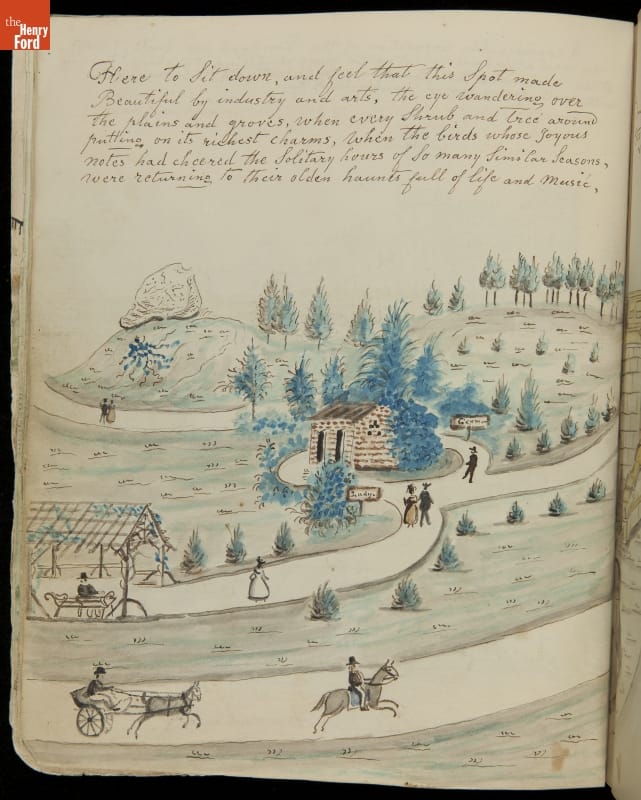 the
Henry
Ford
Here to Sit down, and feel that this Spot made
Beautiful by industry and arts, the eye wandering over
the plains and groves, when every Shrub and tree around
putting on its richest charms, when the birds whose Joyous
notes had cheered the Solitary hours of So many Similar Seasons,
were returning to their olden haunts full of life and Music,
Gent.
Lady.